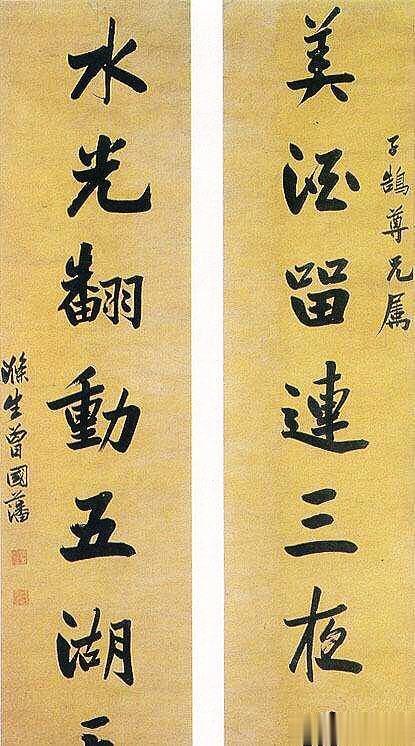 子鵠尊兄属
美酒留連三夜
水光翻動五湖
滌生曾國藩